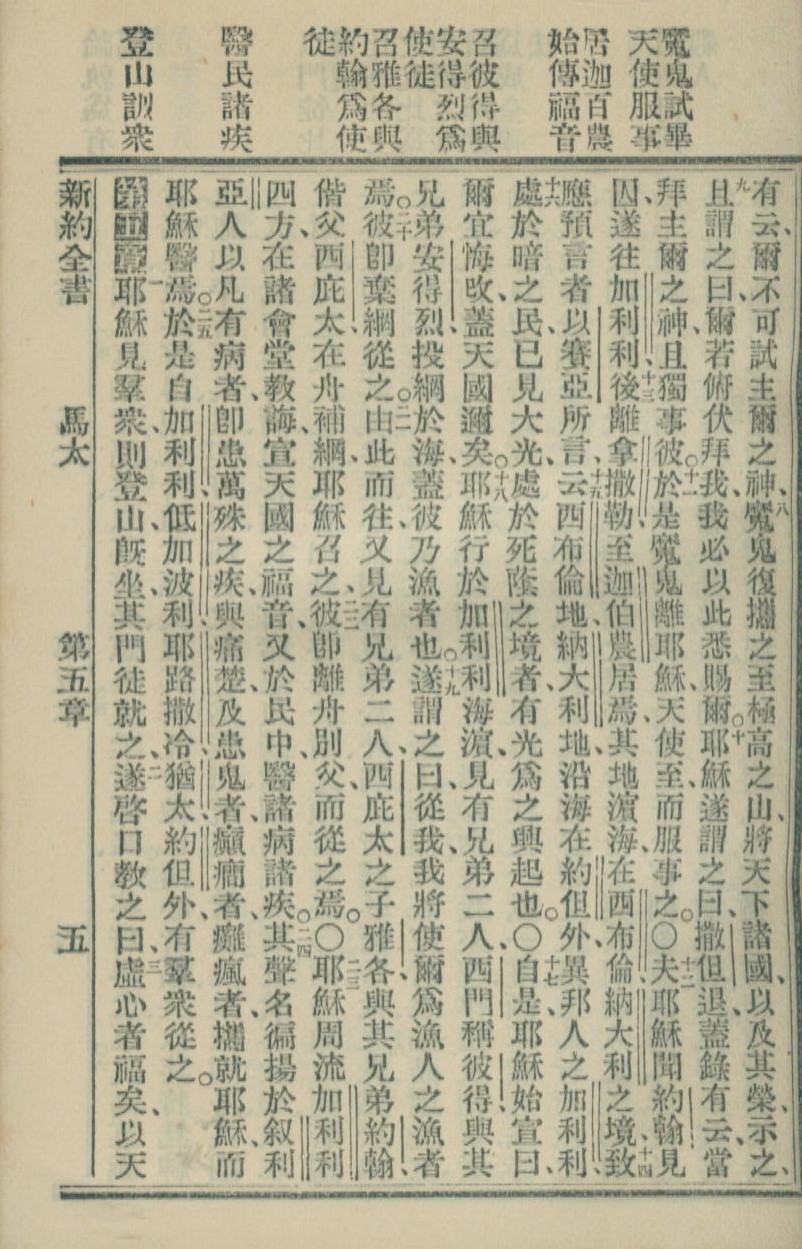 魔鬼試畢
天使服事
居迦百農
始傳福音
召彼得與
安得烈爲
使徒
召雅各與
約翰爲使
徒
醫民諸疾
登山訓衆
有云、爾不可試主爾之神、八魔鬼復攜之至極高之山、將天下諸國、以及其榮、示之、
九且謂之曰、爾若俯伏拜我、我必以此悉賜爾。十耶穌遂謂之曰、撒但退、蓋錄有云、當
拜主爾之神、且獨事彼。十一於是魔鬼離耶穌、天使至而服事之。〇十二夫耶穌聞約翰見
囚、遂往加利利、十三後離拿撒勒、至迦伯農居焉、其地濱海、在西布倫納大利之境、十四致
應預言者以賽亞所言、十五云、西布倫地、納大利地、沿海在約但外、異邦人之加利利、
十六處於暗之民、已見大光、處於死蔭之境者、有光爲之興起也。〇十七自是耶穌始宣曰、
爾宜悔改、蓋天國邇矣。十八耶穌行於加利利海濱、見有兄弟二人、西門稱彼得、與其
兄弟安得烈、投綱於海、蓋彼乃漁者也。十九遂謂之曰、從我、我將使爾爲漁人之漁者
焉。二十彼卽棄網從之。二一由此而往、又見有兄弟二人、西庇太之子雅各、與其兄弟約翰、
偕父西庇太在舟補網、耶穌召之、二二彼卽離舟別父、而從之焉。〇二三耶穌周流加利利
四方、在諸會堂教誨、宣天國之福音、又於民中、醫諸病諸疾。二四其聲名徧揚於叙利
亞、人以凡有病者、卽患萬殊之疾、與痛楚、及患鬼者、癲癇者、癱瘋者、攜就耶穌、而
耶穌醫焉。二五於是自加利利、低加波利、耶路撒冷、猶太、約但外、有羣衆從之。
第五章 一耶穌見羣衆、則登山、旣坐、其門徒就之、二遂啓口教之曰、三虛心者福矣、以天
新約全書 馬太 第五章 五